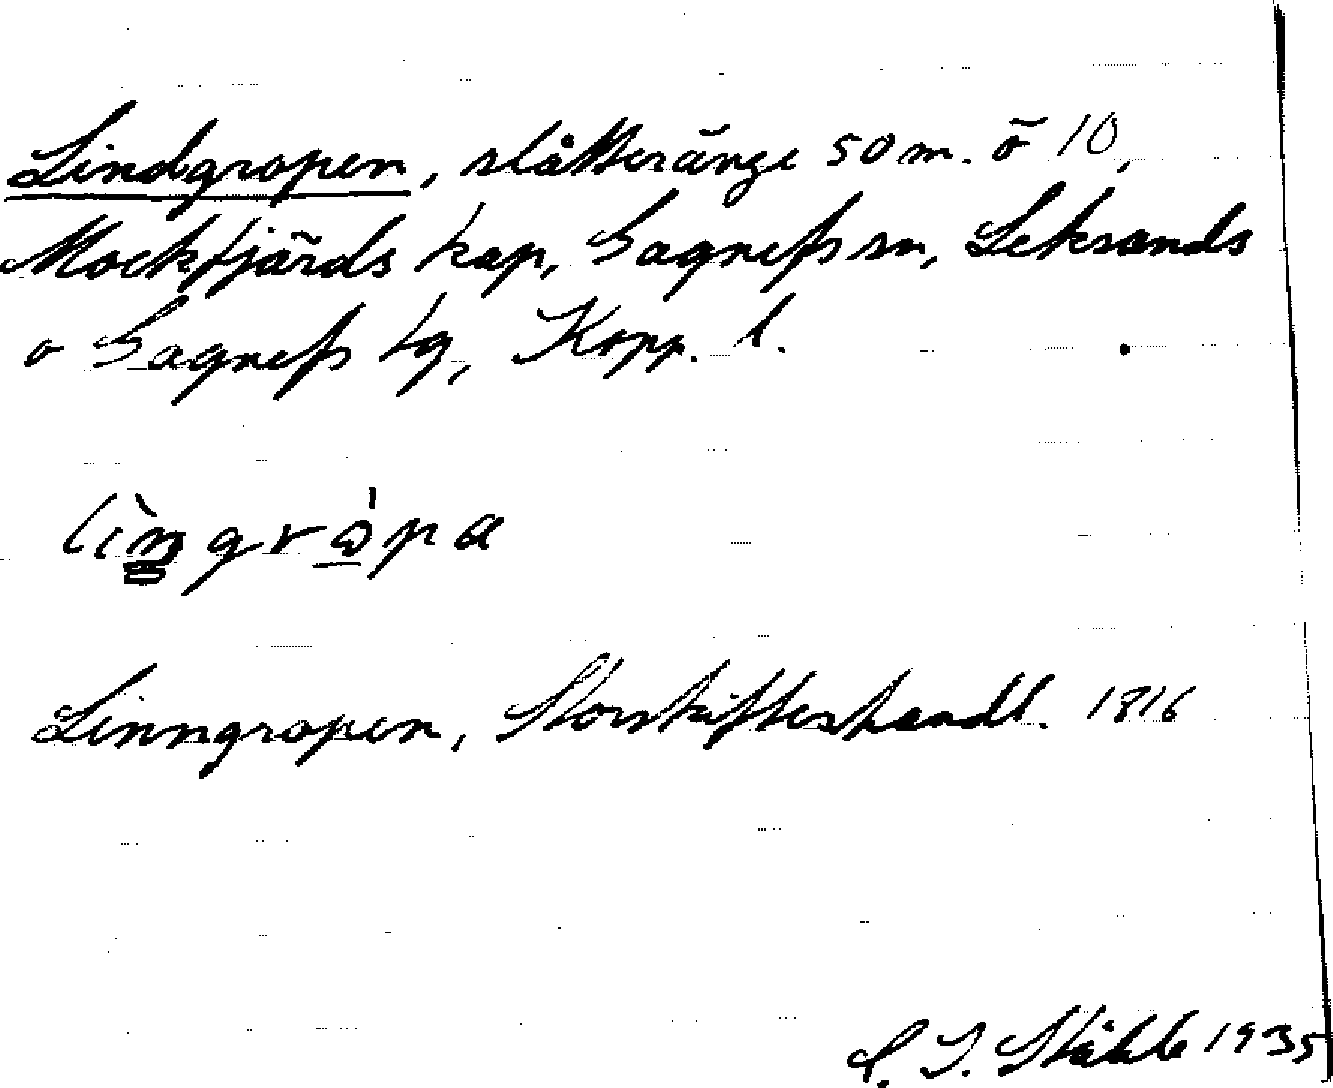 Lindgropen, slåtteränge 50 m. ö 10,
Mockfjärds kap, Gagnefs sn, Leksands
o Gagnefs tg, Kopp. l.
lìngròpa
Linngropen, Storskifteshandl. 1816
C. I. Ståhle 1935